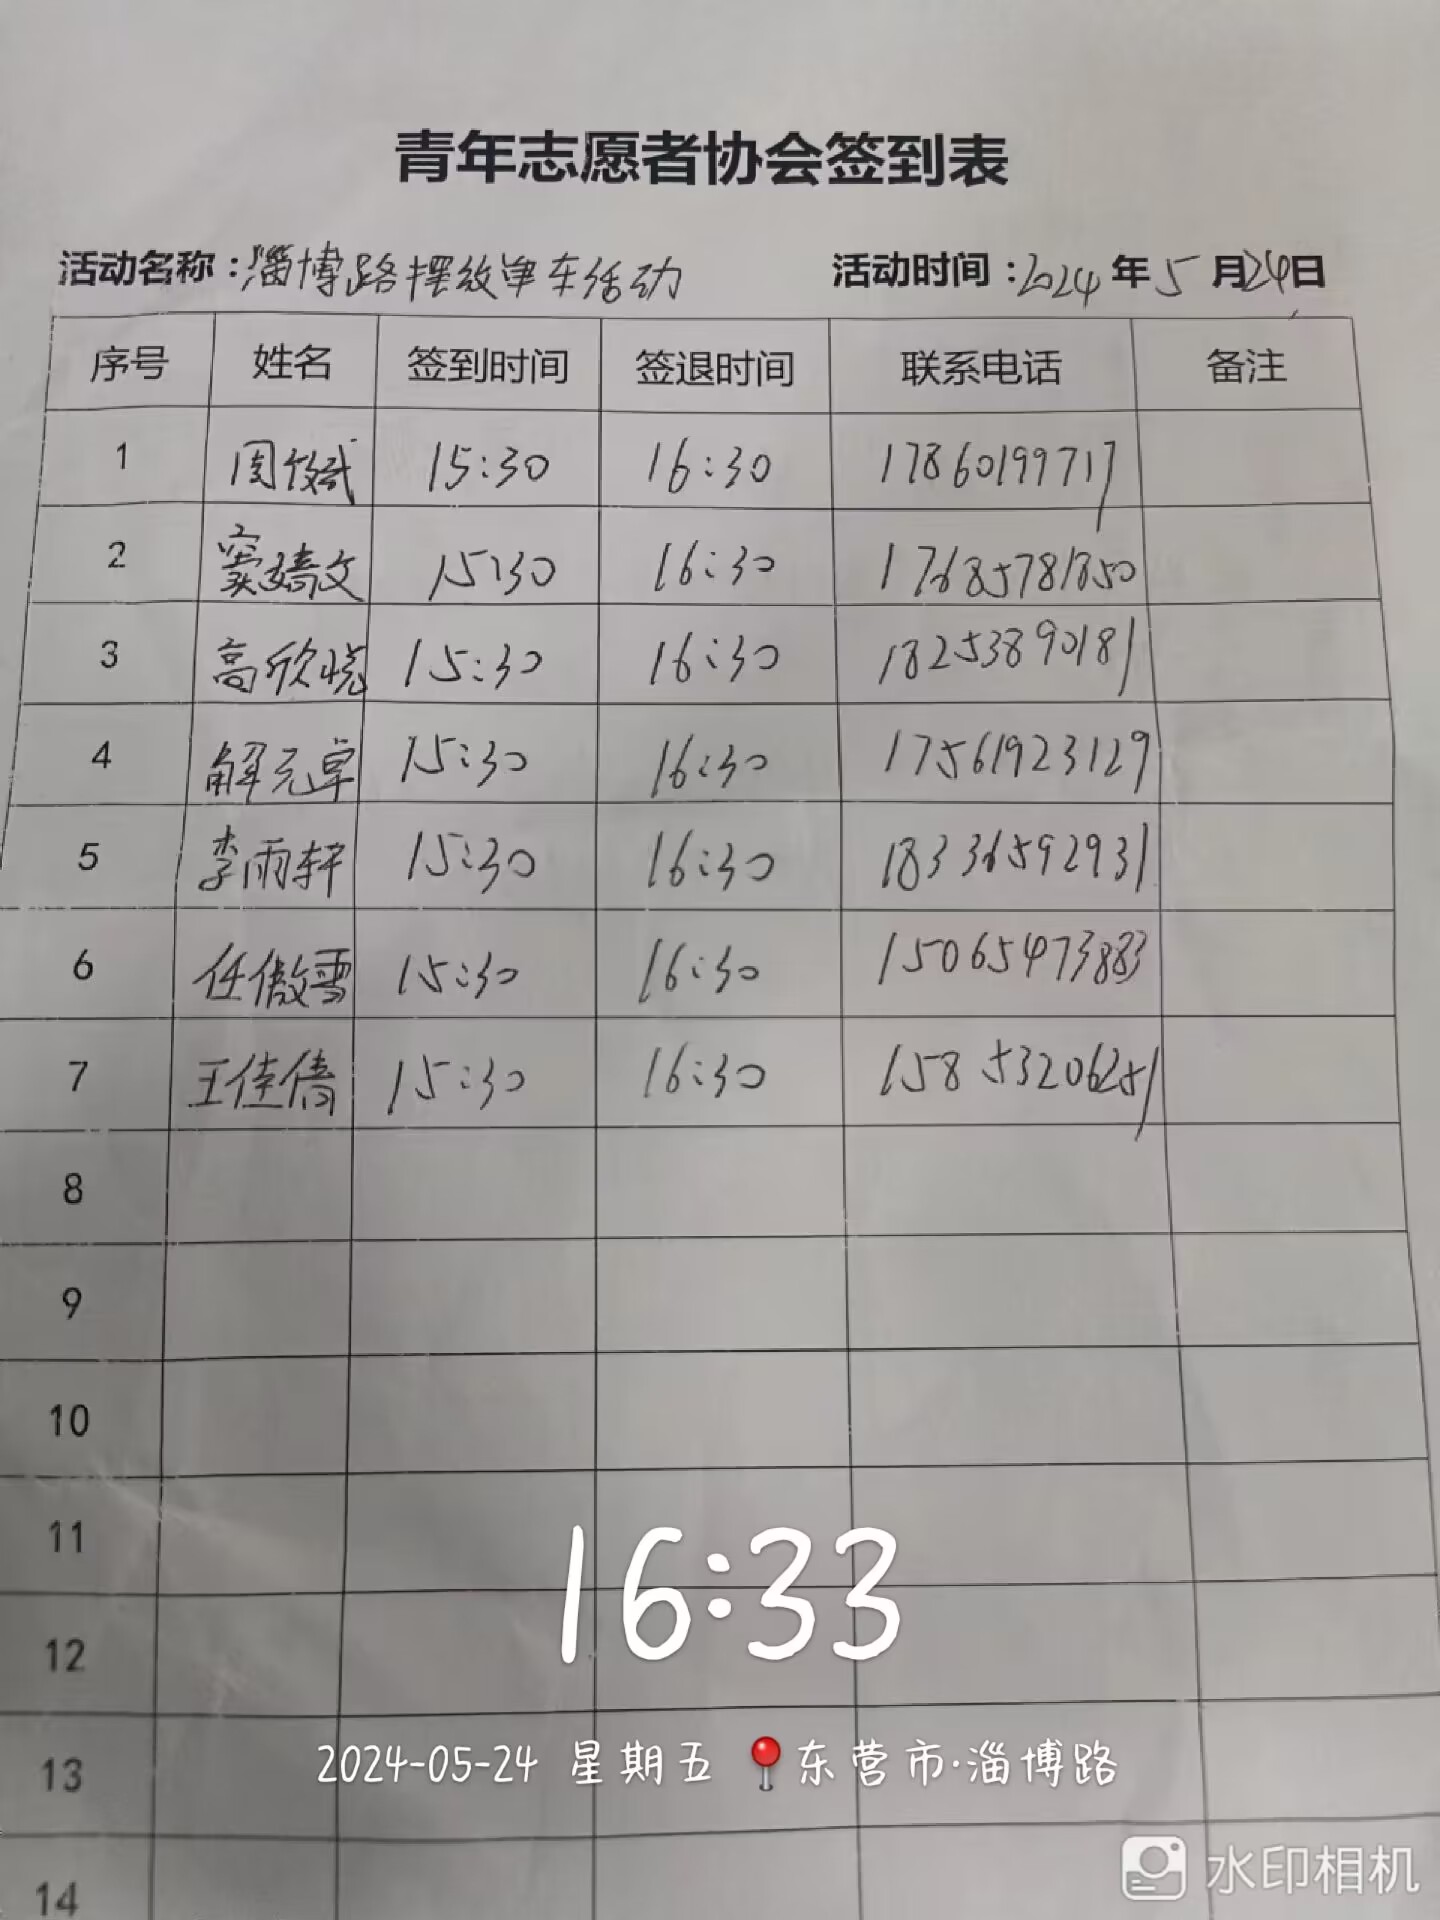 青年志愿者协会签到表
活动名称：淄博路摆放单车活动 活动时间：2024年5月24日
序号 姓名 签到时间 签退时间 联系电话 备注
1 周 15:30 16:30 17860199717
2 窦婧文 15:30 16:30 17685781850
3 高欣晓 15:30 16:30 18253890181
4 解元卓 15:30 16:30 17561923129
5 李雨轩 15:30 16:30 18336592931
6 任傲雪 15:30 16:30 15065473883
7 王佳倩 15:30 16:30 15853206251
8
9
10
11
16:33
12
2024-05-24 星期五 东营市·淄博路
13
水印相机
14